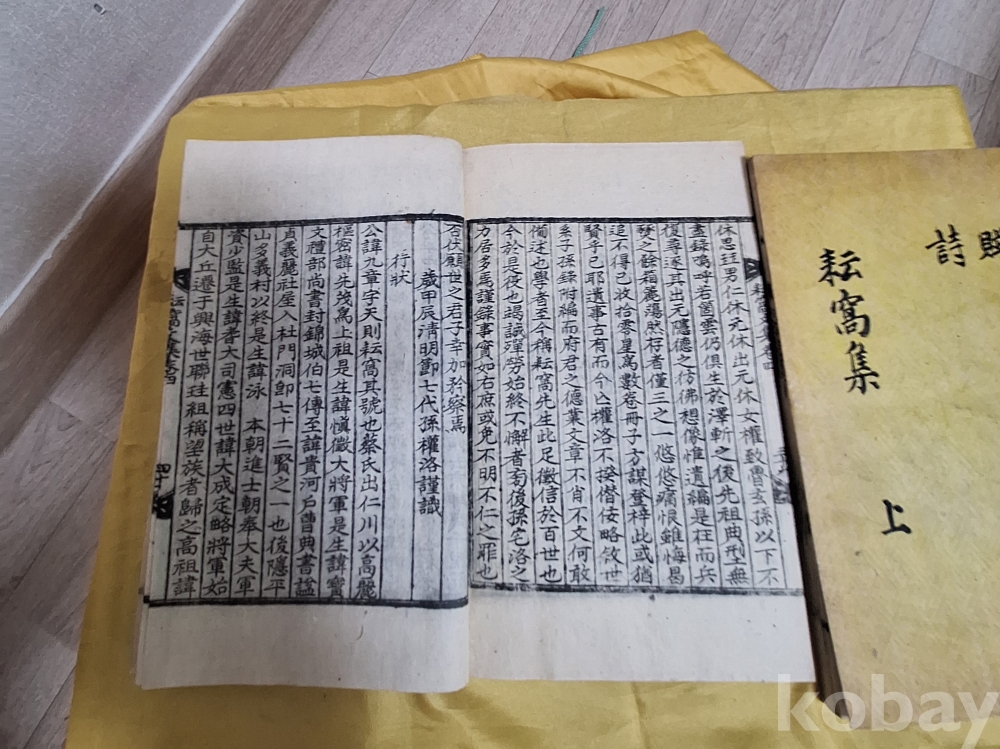 休思珏男仁休元休出元休女權致曺玄孫以下不
盡錄嗚呼若箇雲仍俱生於澤斬之後先祖典型無
復尋逐其出元隱德之彷彿想像惟遺編是在而兵
燹之餘箱簏蕩然存者僅三之一悠悠痛恨雖悔曷
追不得已收拾零星爲數卷冊子方謀登梓此或猶
賢乎已耶遺事古有而今亾權洛不揆僭侫略攽世
系子孫錄附編而府君之德業文章不肖不文何敢
備述也學者至今稱耘窩先生此足徵信於百世也
今於是役也竭誠殫勞始終不懈者旁後孫宅洛之
力居多焉謹錄事實如右庶或免不明不仁之罪也
否伏願世之君子幸加矜察焉
歲甲辰淸明節七代孫權洛謹識
行狀
公諱九章字天則耘窩其號也蔡氏出仁川以高麗
樞密諱先茂爲上祖是生諱愼徵大將軍是生諱寶
文禮部尙書封錦城伯七傳至諱貴河戶曹典書諡
貞義麗社屋入杜門洞卽七十二賢之一也後隱平
山多義村以終是生諱泳 本朝進士朝奉大夫軍
資少監是生諱者大司憲四世諱大成定略將軍始
自大丘遷于興海世聯珪組稱望族者歸之高祖諱
四十
賦
詩
耘窩集
上
kobay